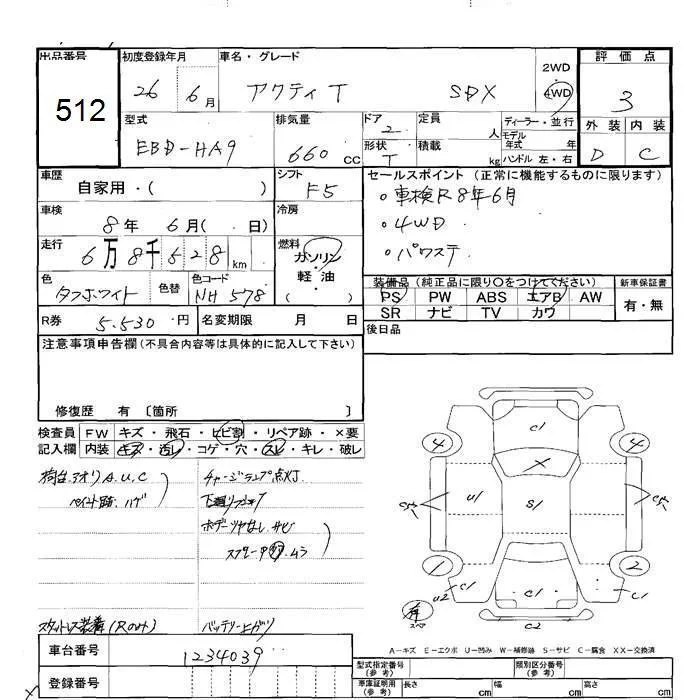 出品番号 初度登録年月 車名・グレード 評価点
512 26 6月 アクティT SDX 2WD 4WD 3
型式 排気量 ドア 2 定員 人 ディーラー・並行 外装 内装
EBD-HA9 660cc 形状 T 積載 kg モデル年式 年 ハンドル 左・右 D C
車歴 自家用・( ) シフト F5 セールスポイント (正常に機能するものに限ります)
車検 8年 6月( . 日) 冷房 ○車検R8年6月
○4WD
走行 6万8千528km 燃料 ガソリン・軽油( ) ○パワステ
色 タフホワイト 色替 色コード NH 578 装備品(純正品に限り〇をつけてください) 新車保証書
PS PW ABS エアB AW 有・無
SR ナビ TV カワ
R券 5.530円 名変期限 月 日 後日品
注意事項申告欄(不具合内容等は具体的に記入して下さい)
修復歴 有 〔箇所 〕
検査員 FW キズ・飛石・ヒビ割・リペア跡・×要
記入欄 内装 キズ・汚レ・コゲ・穴・スレ・キレ・破レ
荷台.アオリ A.U.C チャージランプ点灯
ペイント跡.ハゲ
スタットレス装着(Rのみ) バッテリー上がり
C1
4 X 4
U1 S1
1 2
U2 C1 C1 C1
C2
A-キズ E-エクボ U-凹み W-補修跡 S-サビ C-腐食 XX-交換済
車台番号 1234039 型式指定番号(参考) 類別区分番号(参考)
登録番号 車庫証明用(参考) 長さ cm 幅 cm 高さ cm